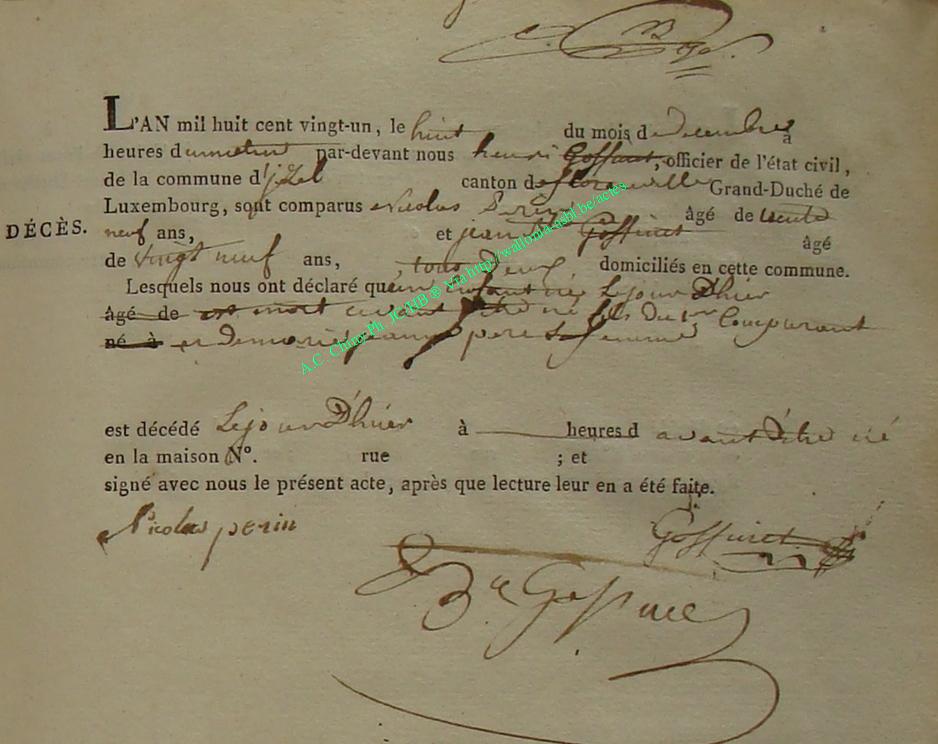 L'AN mil huit cent vingt-un, le huit du mois de decembre à
heures du matin par-devant nous henri Goffinet, officier de l'état civil,
de la commune d'jzel canton de florenville Grand-Duché de
Luxembourg, sont comparus Nicolas Perin âgé de trente
DÉCÈS. neuf ans, et jean Goffinet âgé
de vingt neuf ans, tous deux domiciliés en cette commune.
Lesquels nous ont déclaré qu'un enfant né le jour D'hier
âgé de est mort avant D'etre né fils du 1er Comparant
né à et de marie jeanne sa femme
est décédé Le jour D'hier à heures d avant D'être né
en la maison N°. rue ; et
signé avec nous le présent acte, après que lecture leur en a été faite.
Nicolas perin Goffinet
Goffinet
A.C Chiny Ph. JCHB ® via http://wallonia-asbl.be/actes